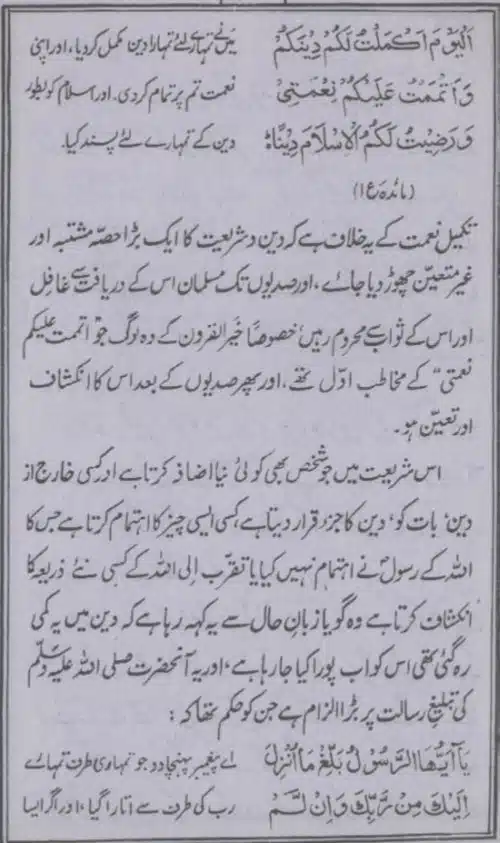 اَلْیَوْمَ اَکْمَلْتُ لَکُمْ دِیْنَکُمْ میں نے تمہارے لئے تمہارا دین مکمل کر دیا، اور اپنی
وَاَتْمَمْتُ عَلَیْکُمْ نِعْمَتِیْ نعمت تم پر تمام کردی۔ اور اسلام کو بطور
وَرَضِیْتُ لَکُمُ الْاِسْلَامَ دِیْنًاؕ دین کے تمہارے لئے پسند کیا۔
(مائدہ ع۱)
تکمیل نعمت کے یہ خلاف ہے کہ دین و شریعت کا ایک بڑا حصّہ مشتبہ اور
غیر متعیّن چھوڑ دیا جائے، اور صدیوں تک مسلمان اس کے دریافت سے غافل
اور اس کے ثواب سے محروم رہیں، خصوصاً خیر القرون کے وہ لوگ جو ”اتممت علیکم
نعمتی“ کے مخاطب اوّل تھے، اور پھر صدیوں کے بعد اس کا انکشاف
اور تعیّن ہو۔
اس شریعت میں جو شخص بھی کوئی نیا اضافہ کرتا ہے اور کسی خارج از
دین، بات کو، دین کا جز قرار دیتا ہے، کسی ایسی چیز کا اہتمام کرتا ہے جس کا
اللہ کے رسولؐ نے اہتمام نہیں کیا یا تقرّب اِلی اللہ کے کسی نئے ذریعہ کا
انکشاف کرتا ہے وہ گویا زبانِ حال سے یہ کہہ رہا ہے کہ دین میں یہ کمی
رہ گئی تھی اس کو اب پورا کیا جا رہا ہے، اور یہ آنحضرت صلی اللہ علیہ وسلم
کی تبلیغِ رسالت پر بڑا الزام ہے جن کو حکم تھا کہ:
یٰٓاَیُّهَا الرَّسُوْلُ بَلِّغْ مَآ اُنْزِلَ اے پیغمبر پہنچا دو جو تمہاری طرف تمہارے
اِلَیْكَ مِنْ رَّبِّكَ وَاِنْ لَّمْ رب کی طرف سے اتارا گیا، اور اگر ایسا